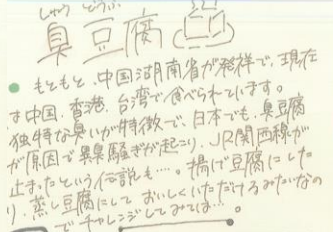 しゅう どうふ
臭豆腐
もともと、中国湖南省が発祥で、現在
は中国、香港、台湾で食べられています。
独特な臭いが特徴で、日本でも、臭豆腐
が原因で異臭騒ぎが起こり、JR関西線が
止まったという伝説も…。揚げ豆腐にした
り、蒸し豆腐にして おいしくいただけるみたいなの
でチャレンジしてみては…。